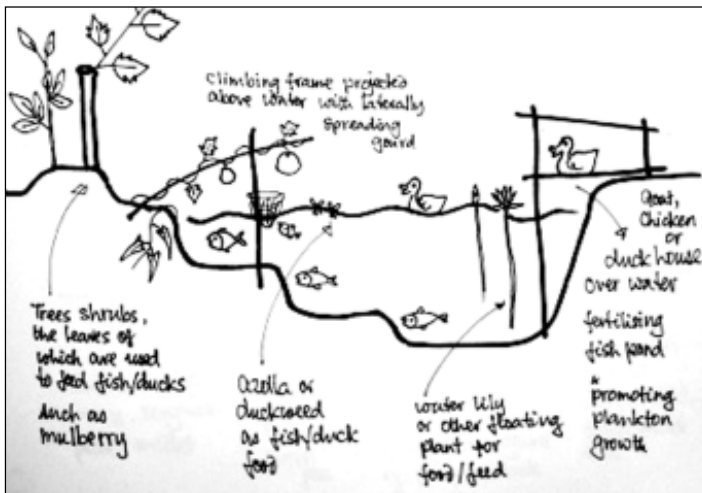 Climbing frame projected
above water with laterally
spreading
gourd
Goat,
Chicken
or
duck house
over water
fertilising
fish pond
promoting
plankton
growth
Trees shrubs,
the leaves of
which are used
to feed fish/ducks
such as
mulberry
Azolla or
duckweed
as fish/duck
food
water lily
or other floating
plant for
food/feed